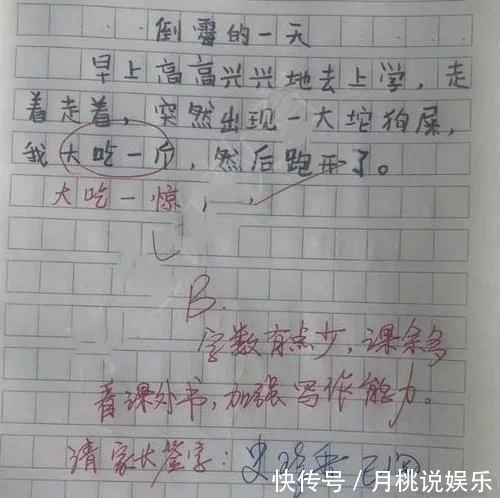 倒霉的一天
早上高高兴兴地去上学，走
着走着，突然出现一大坨狗屎，
我大吃一斤，然后跑开了。
大吃一惊，
B.
字数有点少，课余多
看课外书，加强写作能力。
请家长签字：史珍香 已阅
快传号/月桃说娱乐